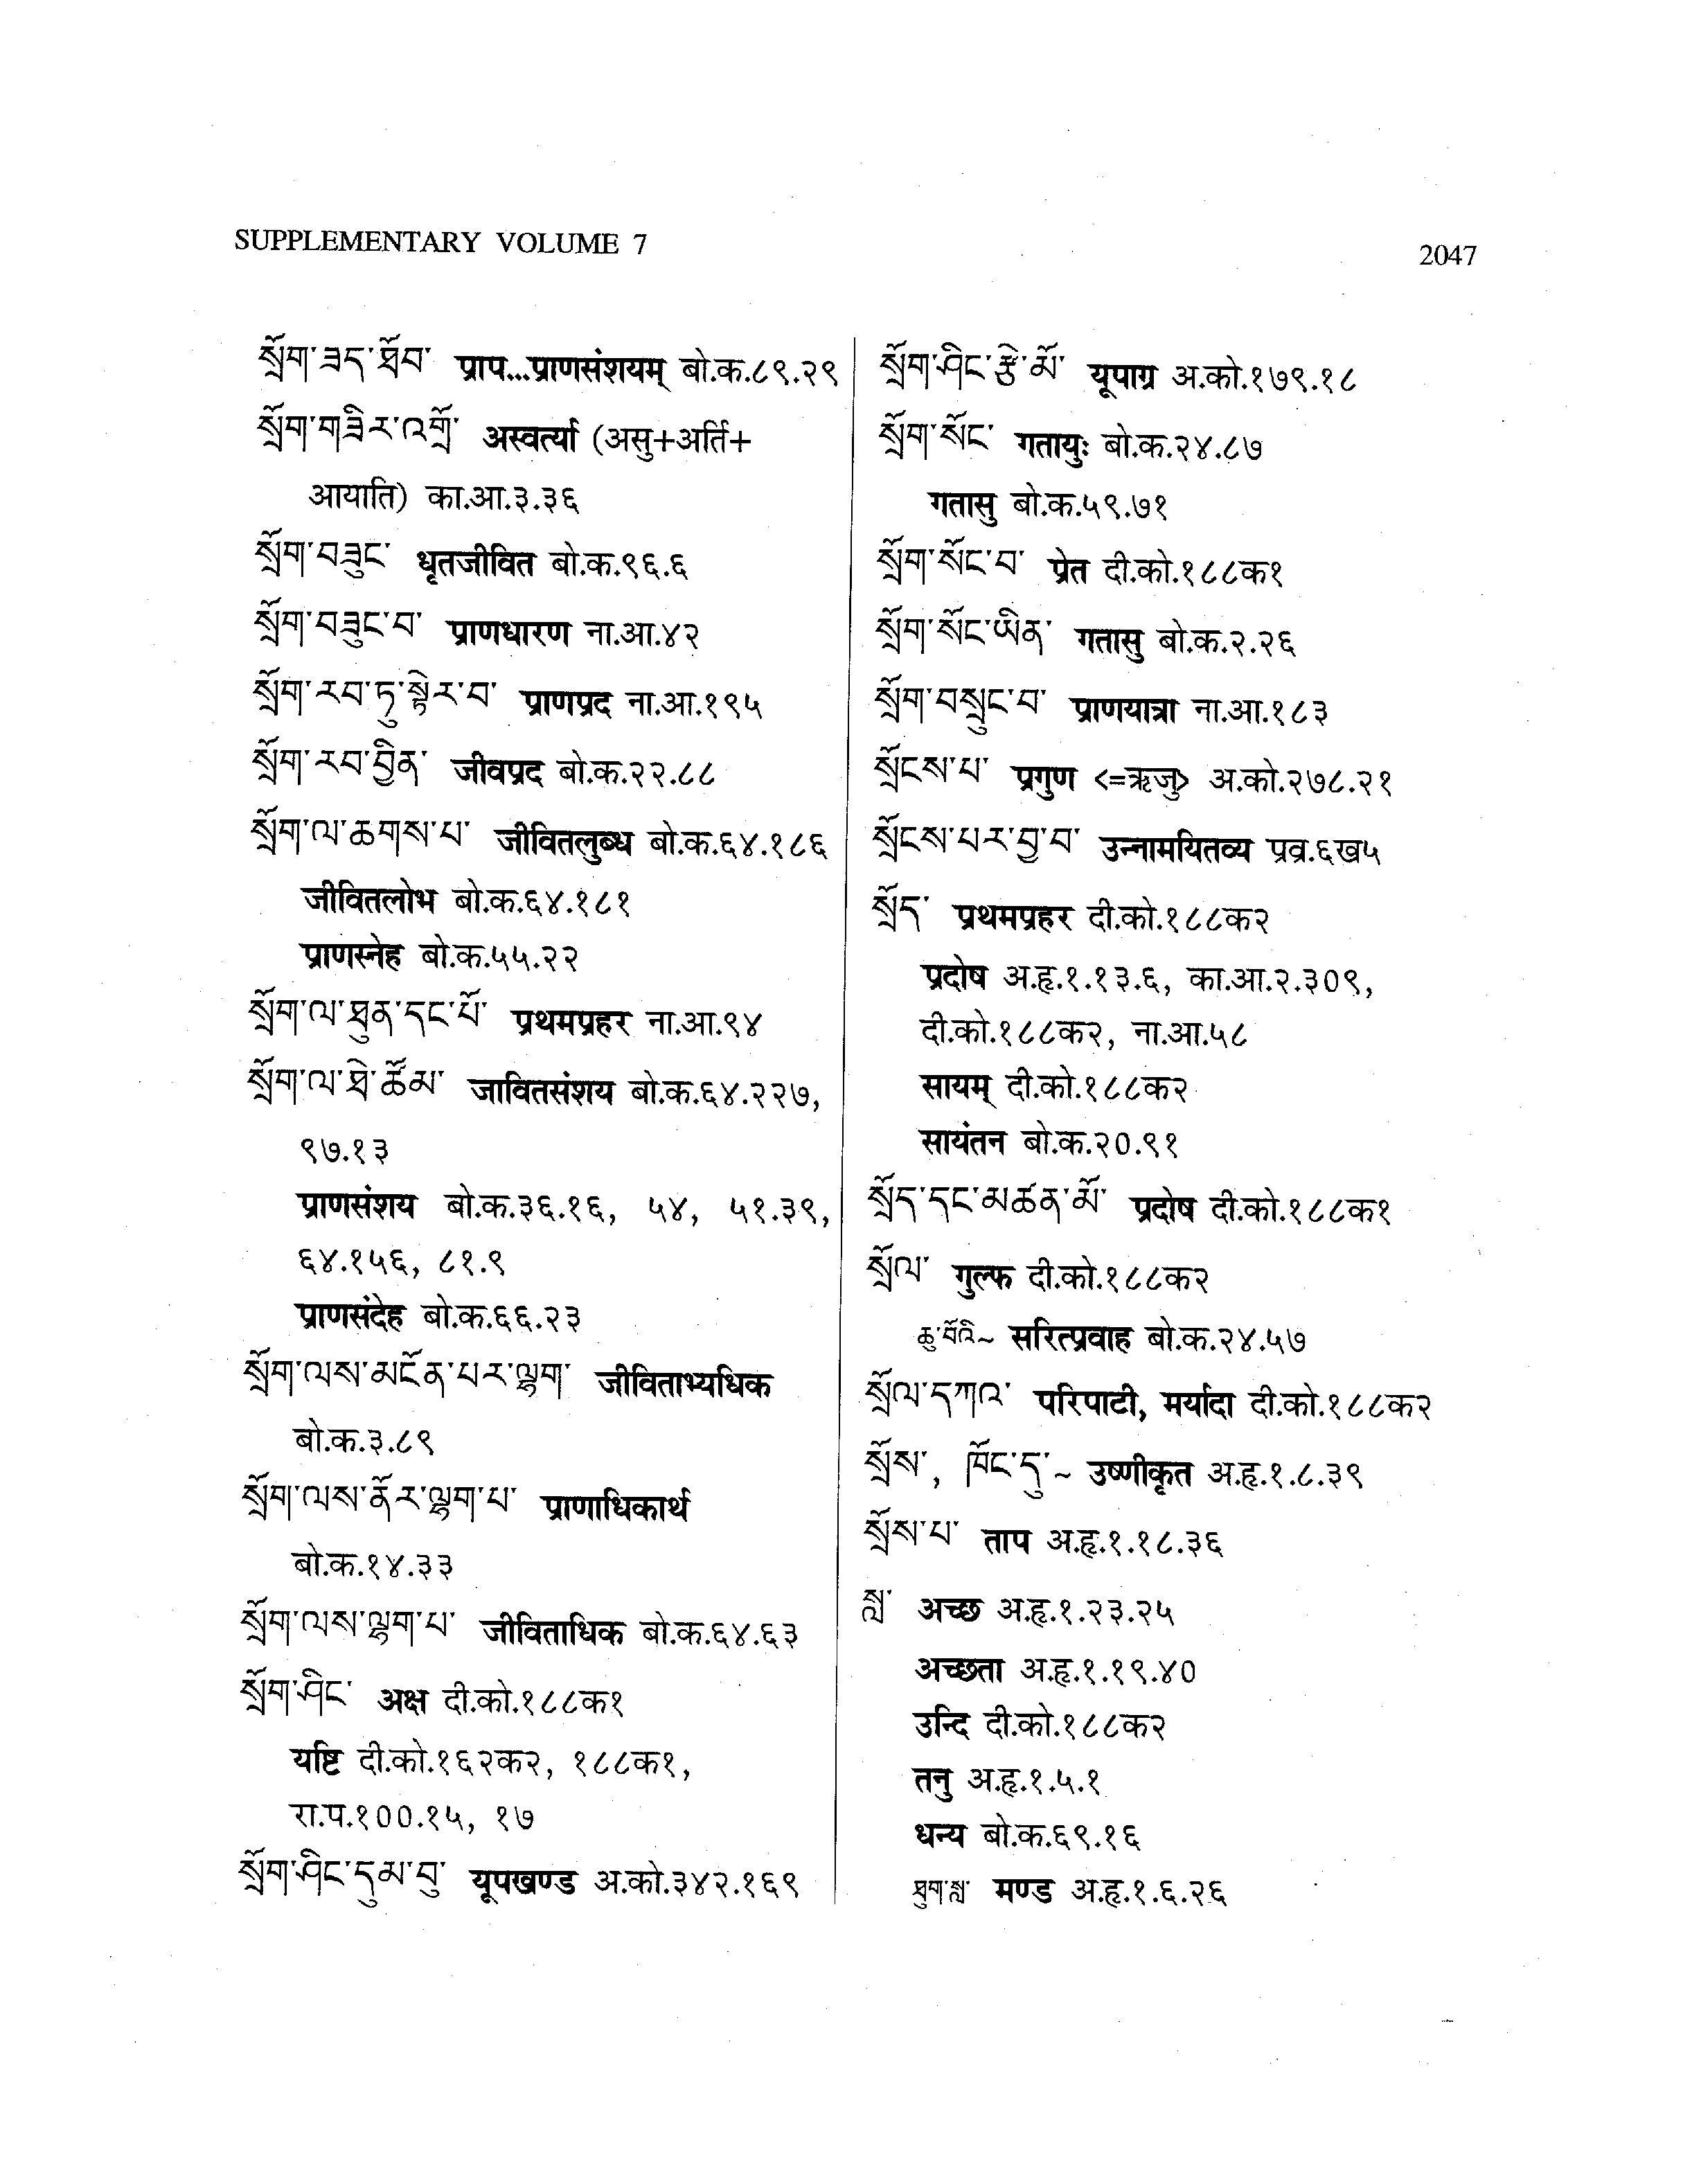 SUPPLEMENTARY VOLUME 7
2047
སྲོག་ཟད་ཐོབ་ प्राप...प्राणसंशयम् बो.क.८९.२९
སྲོག་གཟིར་འགྲོ་ अस्वर्त्या (असु+अर्ति+
आयाति) का.आ.३.३६
སྲོག་བཟུང་ धृतजीवित बो.क.९६.६
སྲོག་བཟུང་བ་ प्राणधारण ना.आ.४२
སྲོག་རབ་ཏུ་སྟེར་བ་ प्राणप्रद ना.आ.१९५
སྲོག་རབ་བྱིན་ जीवप्रद बो.क.२२.८८
སྲོག་ལ་ཆགས་པ་ जीवितलुब्ध बो.क.६४.१८६
जीवितलोभ बो.क.६४.१८१
प्राणस्नेह बो.क.५५.२२
སྲོག་ལ་ཐུན་དང་པོ་ प्रथमप्रहर ना.आ.९४
སྲོག་ལ་ཐེ་ཚོམ་ जावितसंशय बो.क.६४.२२७,
९७.१३
प्राणसंशय बो.क.३६.१६, ५४, ५१.३९,
६४.१५६, ८१.९
प्राणसंदेह बो.क.६६.२३
སྲོག་ལས་མངོན་པར་ལྷག་ जीविताभ्यधिक
बो.क.३.८९
སྲོག་ལས་ནོར་ལྷག་པ་ प्राणाधिकार्थ
बो.क.१४.३३
སྲོག་ལས་ལྷག་པ་ जीविताधिक बो.क.६४.६३
སྲོག་ཤིང་ अक्ष दी.को.१८८क१
यष्टि दी.को.१६२क२, १८८क१,
रा.प.१००.१५, १७
སྲོག་ཤིང་དུམ་བུ་ यूपखण्ड अ.को.३४२.१६९
སྲོག་ཤིང་རྩེ་མོ་ यूपाग्र अ.को.१७९.१८
སྲོག་སོང་ गतायुः बो.क.२४.८७
गतासु बो.क.५९.७१
སྲོག་སོང་བ་ प्रेत दी.को.१८८क१
སྲོག་སོང་ཡིན་ गतासु बो.क.२.२६
སྲོག་བསྲུང་བ་ प्राणयात्रा ना.आ.१८३
སྲོངས་པ་ प्रगुण <=ऋजु> अ.को.२७८.२१
སྲོངས་པར་བྱ་བ་ उन्नामयितव्य प्रव्र.६ख५
སྲོད་ प्रथमप्रहर दी.को.१८८क२
प्रदोष अ.हृ.१.१३.६, का.आ.२.३०९,
दी.को.१८८क२, ना.आ.५८
सायम् दी.को.१८८क२
सायंतन बो.क.२०.९१
སྲོད་དང་མཚན་མོ་ प्रदोष दी.को.१८८क१
སྲོལ་ गुल्फ दी.को.१८८क२
ཆུ་བོའི~ सरित्प्रवाह बो.क.२४.५७
སྲོལ་དཀའ་ परिपाटी, मर्यादा दी.को.१८८क२
སྲོས་, ཁོང་དུ་~ उष्णीकृत अ.हृ.१.८.३९
སྲོས་པ་ ताप अ.हृ.१.१८.३६
སླ་ अच्छ अ.हृ.१.२३.२५
अच्छता अ.हृ.१.१९.४०
उन्दि दी.को.१८८क२
तनु अ.हृ.१.५.१
धन्य बो.क.६९.१६
ཐུག་སླ་ मण्ड अ.हृ.१.६.२६